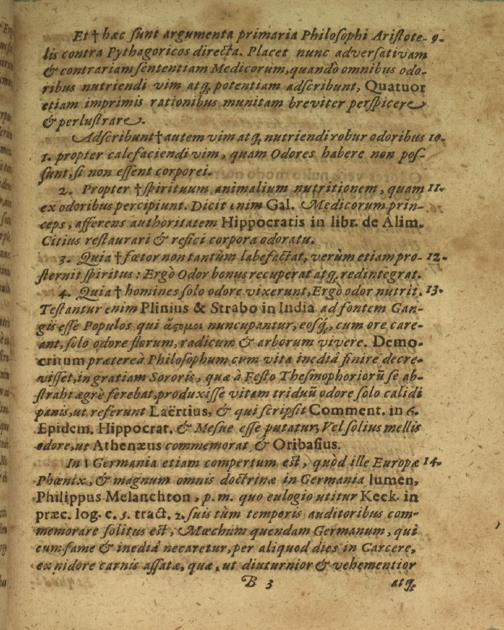 Et † hæc sunt argumenta primaria Philosophi Aristote- 9.
lis contra Pythagoricos directa. Placet nunc adversativam
& contrariam sententiam Medicorum, quando omnibus odo-
ribus nutriendi vim atq, potentiam adscribunt, Quatuor
etiam imprimis rationibus munitam breviter perspicere
& perlustrare.
Adscribunt † autem vim atq, nutriendi robur odoribus 10.
1. propter calefaciendi vim, quam Odores habere non pos-
sunt, si non essent corporei.
2. Propter † spirituum animalium nutritionem, quam 11.
ex odoribus percipiunt. Dicit enim Gal. Medicorum prin-
ceps, afferens authoritatem Hippocratis in libr. de Alim.
Citius restaurari & refici corpora odoratu.
3. Quia † fœtor non tantùm labefactat, verùm etiam pro- 12.
sternit spiritus: Ergò Odor bonus recuperat atq, redintegrat.
4. Quia † homines solo odore vixerunt, Ergò odor nutrit. 13.
Testantur enim Plinius & Strabo in India ad fontem Gan-
gis esse Populos qui ἄςομοι nuncupantur, eosq, cum ore care-
ant, solo odore florum, radicum & arborum vivere. Demo-
critum prætereà Philosophum cum vitã inediâ finire decre-
visset, in gratiam Sororis, quæ à Festo Thesmophoriorũ se ab-
strahi ægrè ferebat, produxisse vitam triduũ odore solo calidi
panis, ut referunt Laërtius, & qui scripsit Comment. in 6.
Epidem. Hippocrat. & Mesue esse putatur, Vel solius mellis
odore, ut Athenæus commemorat & Oribasius.
In † Germania etiam compertum est, quòd ille Europæ 14.
Phœnix, & magnum omnis doctrinæ in Germania lumen,
Philippus Melanchton, p. m. quo eulogio utitur Keck. in
præc. log. c. 5. tract. 2. suis tùm temporis auditoribus com-
memorare solitus est, Mœchum quendam Germanum, qui
cum fame & inediâ necaretur, per aliquod dies in Carcere,
ex nidore carnis assatæ, quæ, ut diuturnior & vehementior
B 3 atq,